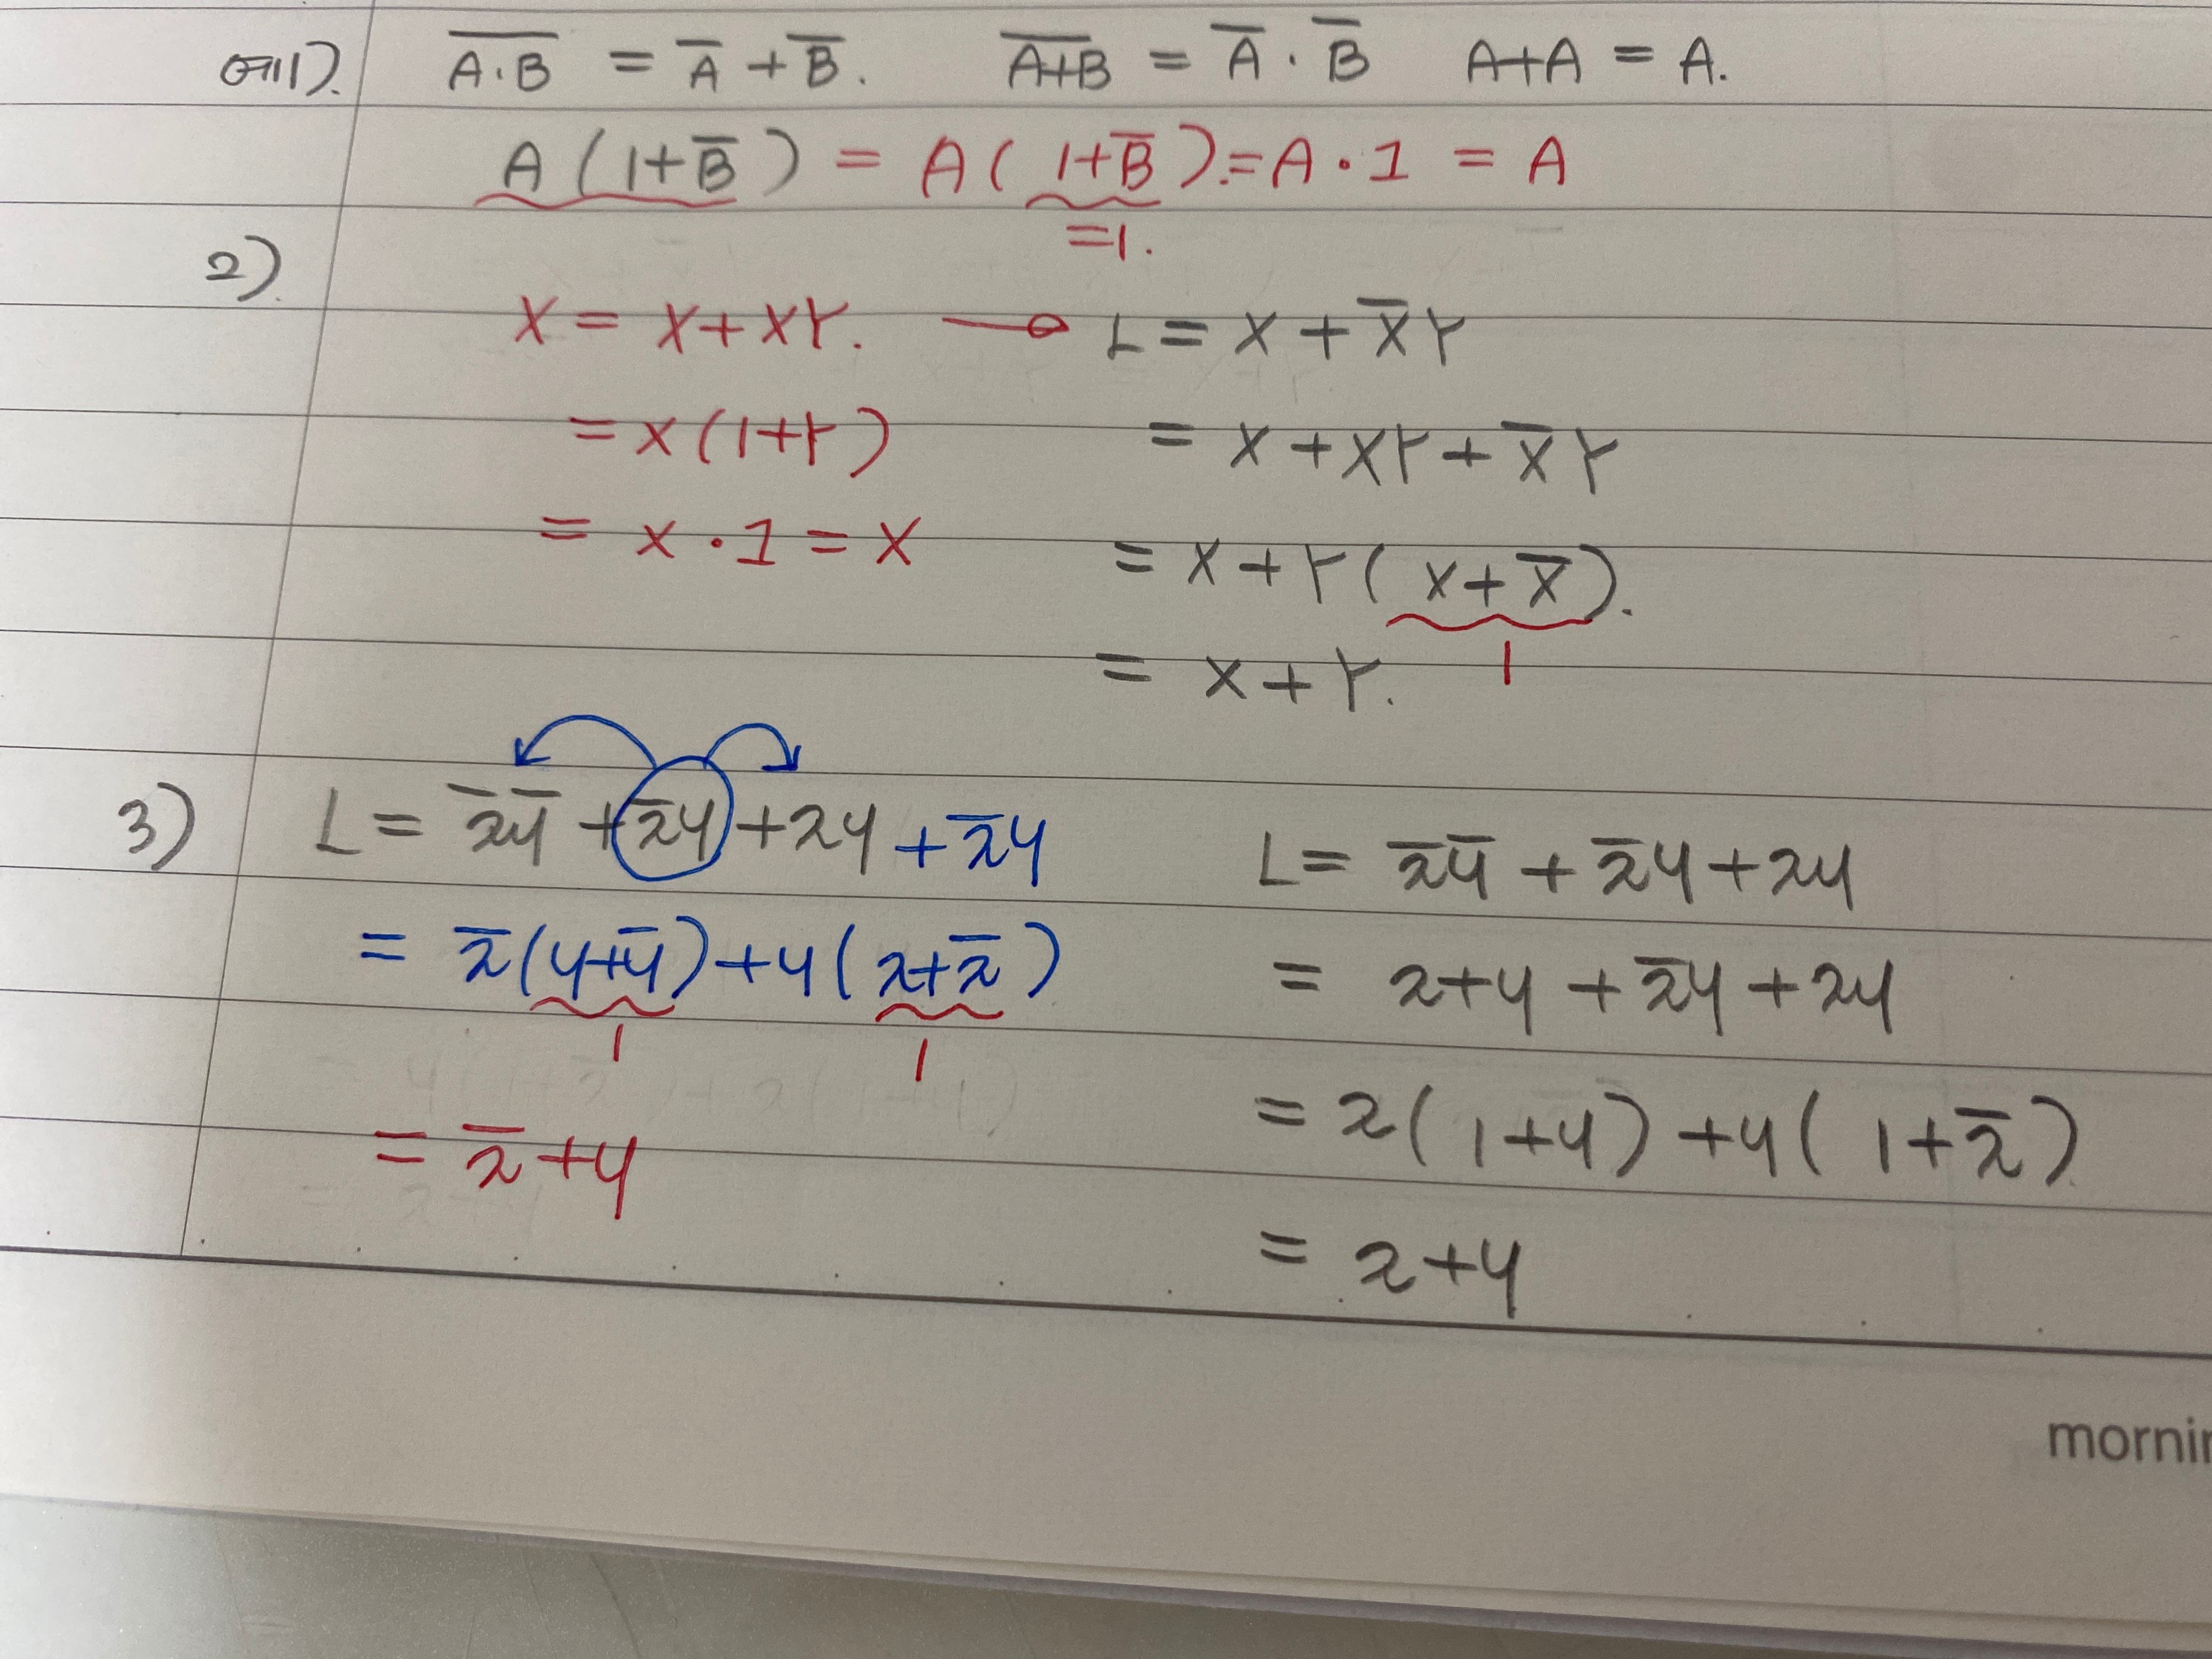 예1). A̅·̅B̅ = A̅ + B̅. A̅+̅B̅ = A̅ · B̅ A+A = A.
A(1+B̅) = A(1+B̅).=A·1 = A
=1.
2)
X = X+XY. → L = X + X̅Y
= X(1+Y) = X + XY + X̅Y
= X·1 = X = X + Y(X+X̅).
1
= X+Y.
3) L = x̅y̅ + x̅y + xy + x̅y L = x̅y̅ + x̅y + xy
= x̅(y+y̅)+y(x+x̅) = x+y + x̅y + xy
1 1
= x(1+y)+y(1+x̅)
= x̅+y
= x+y